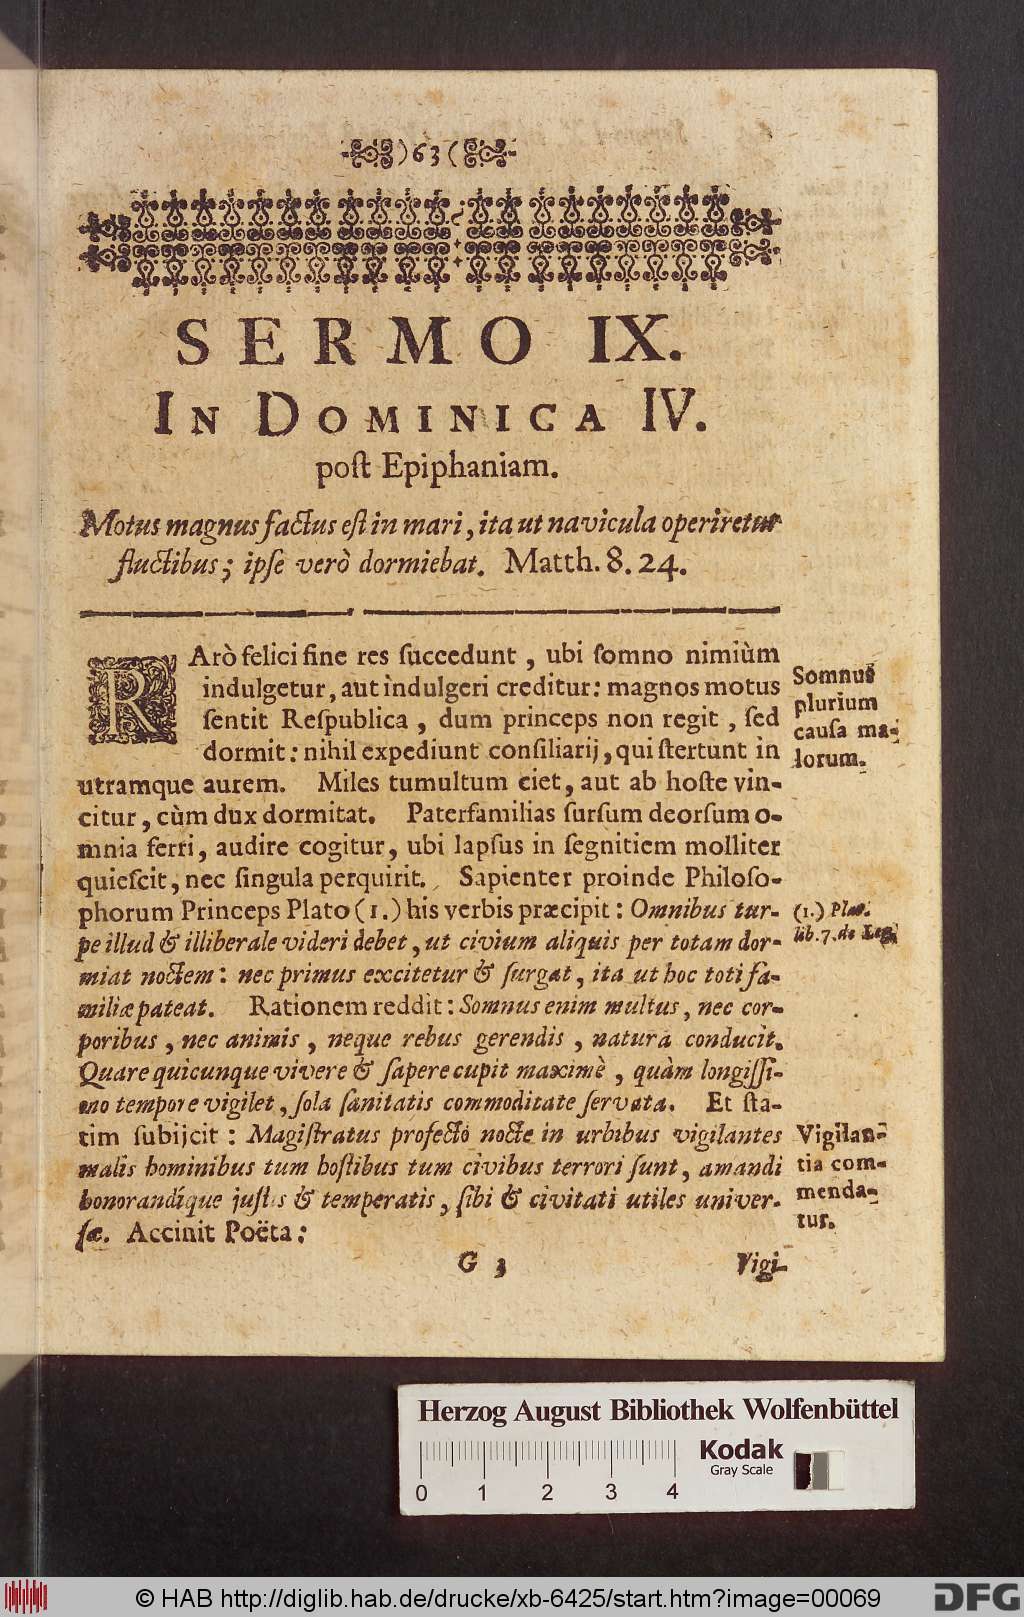 )63(
SERMO IX.
IN DOMINICA IV.
poſt Epiphaniam.
Motus magnus factus eſt in mari, ita ut navicula operiretur
fluctibus; ipſe verò dormiebat. Matth. 8. 24.
RArò felici fine res ſuccedunt, ubi ſomno nimiùm
indulgetur, aut indulgeri creditur: magnos motus
ſentit Reſpublica, dum princeps non regit, ſed
dormit: nihil expediunt conſiliarij, qui ſtertunt in
utramque aurem. Miles tumultum ciet, aut ab hoſte vin-
citur, cùm dux dormitat. Paterfamilias ſurſum deorſum o-
mnia ferri, audire cogitur, ubi lapſus in ſegnitiem molliter
quieſcit, nec ſingula perquirit. Sapienter proinde Philoſo-
phorum Princeps Plato (1.) his verbis præcipit: Omnibus tur-
pe illud & illiberale videri debet, ut civium aliquis per totam dor-
miat noctem: nec primus excitetur & ſurgat, ita ut hoc toti fa-
miliæ pateat. Rationem reddit: Somnus enim multus, nec cor-
poribus, nec animis, neque rebus gerendis, natura conducit.
Quare quicunque vivere & ſapere cupit maximè, quàm longiſſi-
mo tempore vigilet, ſola ſanitatis commoditate ſervata. Et ſta-
tim ſubijcit: Magiſtratus profectò nocte in urbibus vigilantes
malis hominibus tum hoſtibus tum civibus terrori ſunt, amandi
honorandíque juſtis & temperatis, ſibi & civitati utiles univer-
ſæ. Accinit Poëta:
G 3 Vigi-
Somnus
plurium
cauſa ma-
lorum.
(1.) Plat.
lib. 7. de Leg.
Vigilan-
tia com-
menda-
tur.
Herzog August Bibliothek Wolfenbüttel
Kodak
Gray Scale
0 1 2 3 4
© HAB http://diglib.hab.de/drucke/xb-6425/start.htm?image=00069
DFG